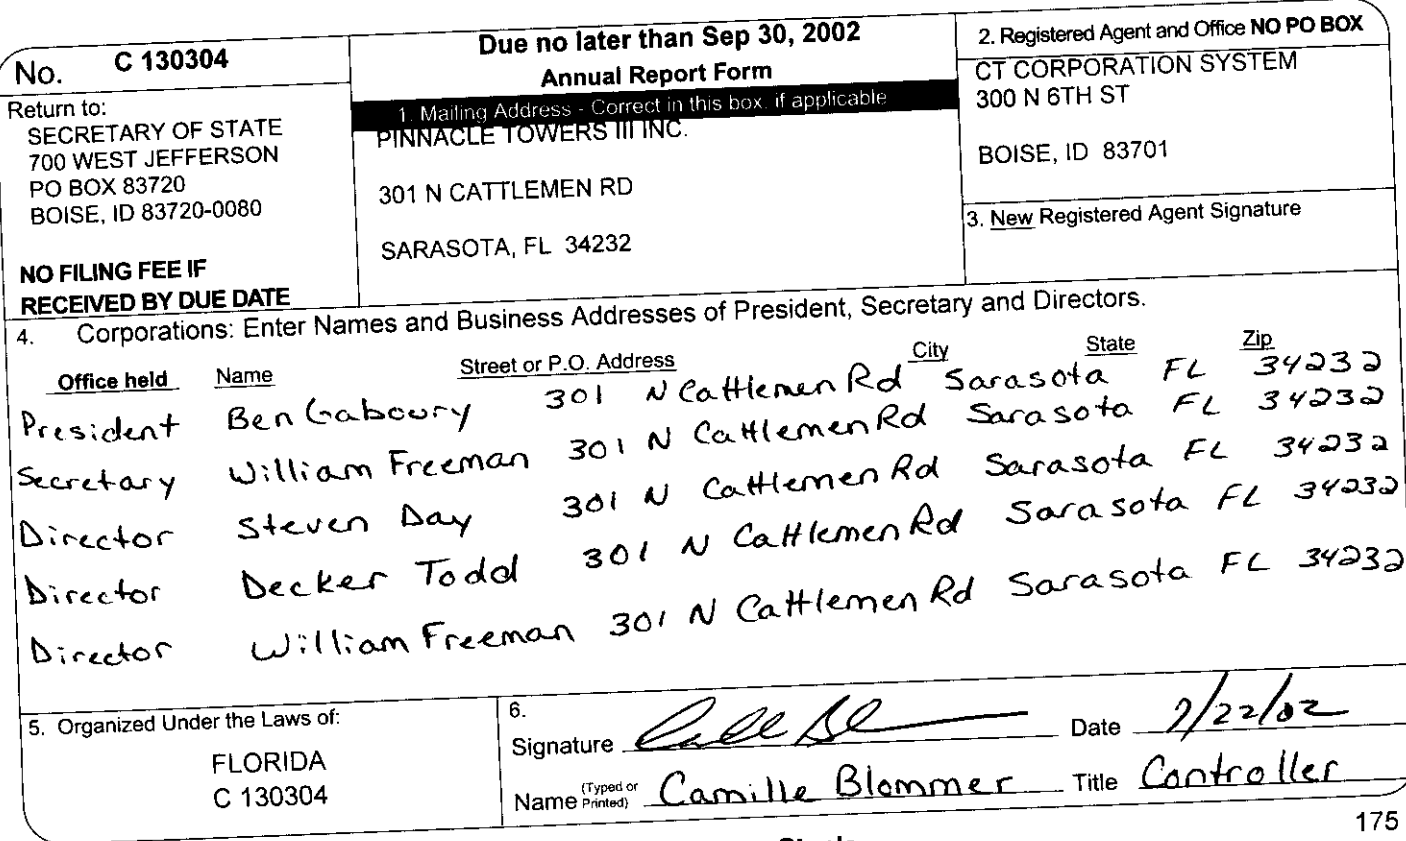 No. C 130304
Return to:
SECRETARY OF STATE
700 WEST JEFFERSON
PO BOX 83720
BOISE, ID 83720-0080
NO FILING FEE IF
RECEIVED BY DUE DATE
Due no later than Sep 30, 2002
Annual Report Form
1. Mailing Address - Correct in this box, if applicable
PINNACLE TOWERS III INC.
301 N CATTLEMEN RD
SARASOTA, FL 34232
2. Registered Agent and Office NO PO BOX
CT CORPORATION SYSTEM
300 N 6TH ST
BOISE, ID 83701
3. New Registered Agent Signature
4. Corporations: Enter Names and Business Addresses of President, Secretary and Directors.
Office held Name Street or P.O. Address City State Zip
President Ben Gaboury 301 N Cattlemen Rd Sarasota FL 34232
Secretary William Freeman 301 N Cattlemen Rd Sarasota FL 34232
Director Steven Day 301 N Cattlemen Rd Sarasota FL 34232
Director Decker Todd 301 N Cattlemen Rd Sarasota FL 34232
Director William Freeman 301 N Cattlemen Rd Sarasota FL 34232
5. Organized Under the Laws of:
FLORIDA
C 130304
6.
Signature Date 7/22/02
Name (Typed or Printed) Camille Blommer Title Controller
175